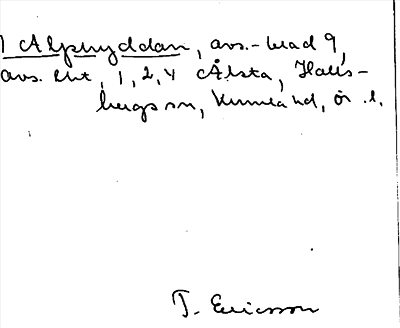 1 Alphyddan, avs.-bead 9,
avs. Ent, 1, 2, 4 Ålsta, Halls-
bergs sn, Kumla hd, ör. l.
T. Ericsson